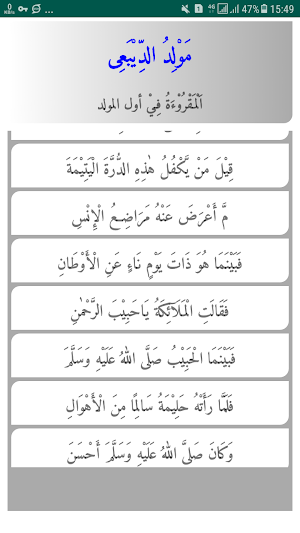 0
KB/s
4G
47%
15:49
مَوْلِدُ الدِّيْبَعِى
اَلْمَقْرُوْءَةُ فِيْ أول المولد
قِيْلَ مَنْ يَّكْفُلُ هٰذِهِ الدُّرَّةَ الْيَتِيْمَةَ
مَّ أَعْرَضَ عَنْهُ مَرَاضِعُ الْإِنْسِ
فَبَيْنَمَا هُوَ ذَاتَ يَوْمٍ نَاءٍ عَنِ الْأَوْطَانِ
فَقَالَتِ الْمَلَائِكَةُ يَاحَبِيْبَ الرَّحْمٰنِ
فَبَيْنَمَا الْحَبِيْبُ صَلَّى اللهُ عَلَيْهِ وَسَلَّمَ
فَلَمَّا رَأَتْهُ حَلِيْمَةُ سَالِمًا مِنَ الْأَهْوَالِ
وَكَانَ صَلَّى اللهُ عَلَيْهِ وَسَلَّمَ أَحْسَنَ